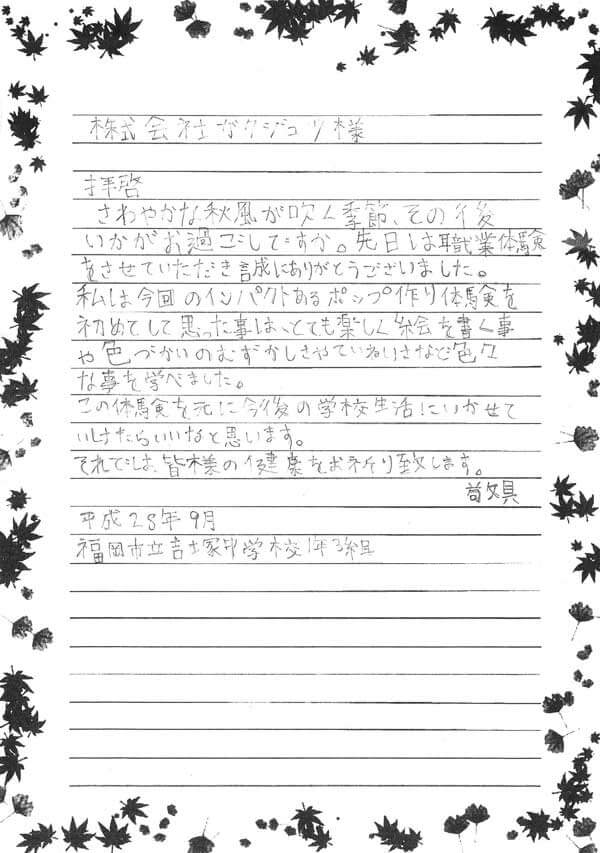 株式会社ガクジコリ様
拝啓
さわやかな秋風が吹く季節、その後
いかがお過ごしてすか。先日は職業体験
をさせていただき誠にありがとうございました。
私は今回のインパクトあるポップ作り体験を
初めてして思った事は、とても楽しく絵を書く事
や色づかいのむずかしさやていねいさなど色々
な事を学べました。
この体験を元に今後の学校生活にいかせて
いけたらいいなと思います。
それでは、皆様の健康をお祈り致します。
敬具
平成28年9月
福岡市立吉塚中学校1年3組